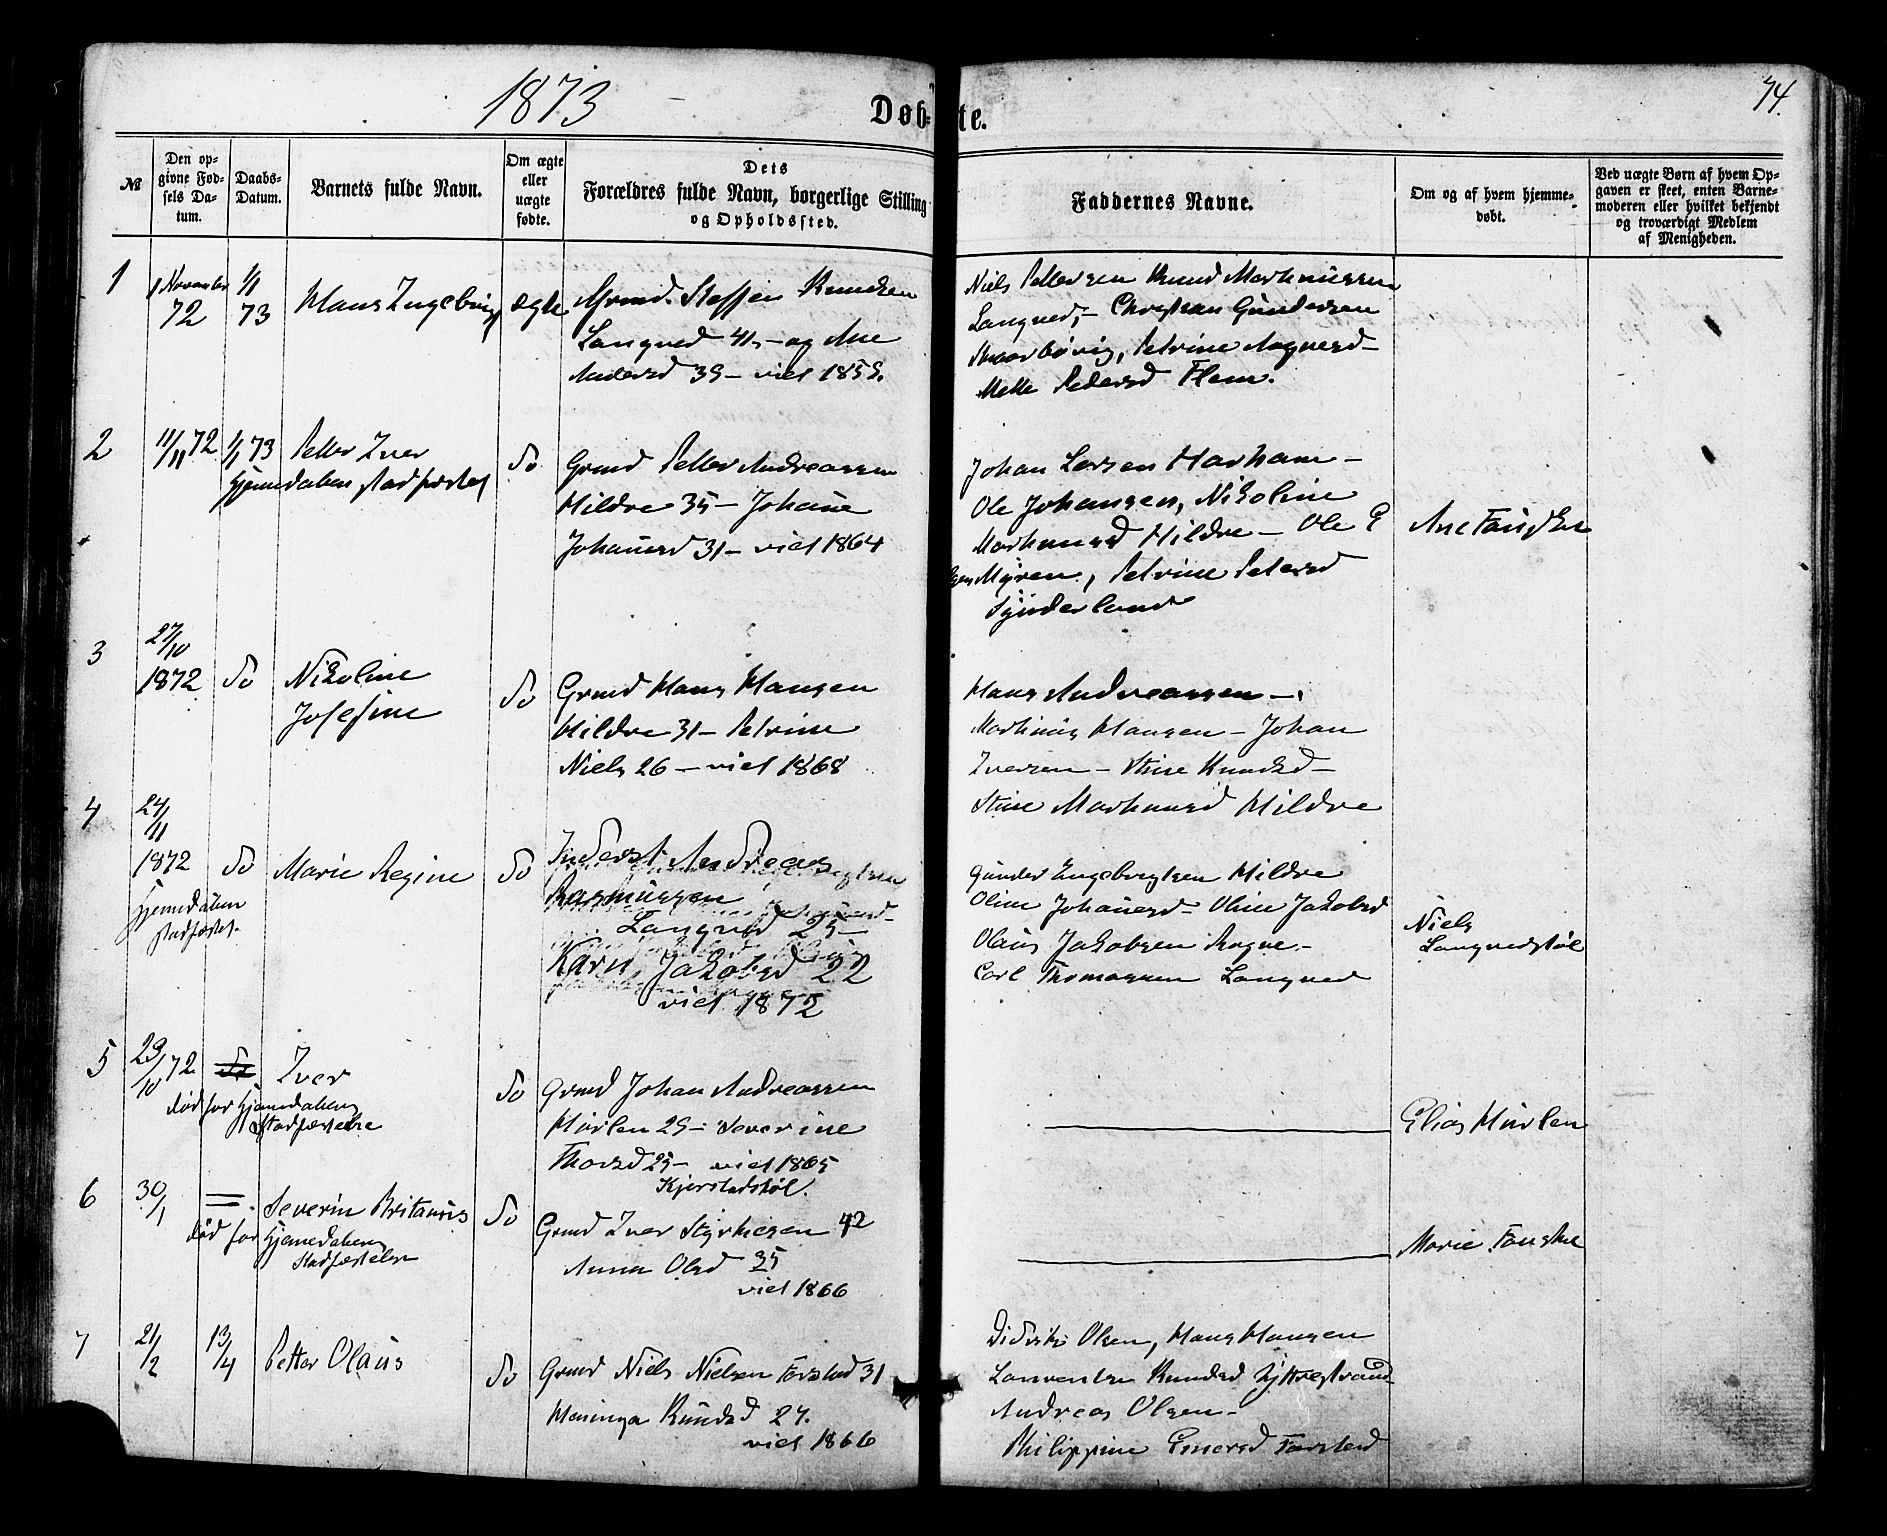 1873
Døb-te.
74.
№
Den op-
givne Fød-
sels Da-
tum.
Daabs-
Datum.
Barnets fulde Navn.
Om ægte
eller
uægte
fødte.
Dets
Forældres fulde Navn, borgerlige Stilling
og Opholdssted.
Faddernes Navne.
Om og af hvem hjemme-
døbt.
Ved uægte Børn af hvem Op-
gaven er skeet, enten Barne-
moderen eller hvilket bekjendt
og troværdigt Medlem
af Menigheden.
1
1 November
72
1/1
73
Hans Ingebrigt
ægte
Grmd. Steffen Knudsen
Langved 41 – og Ane
Andersd 39 – viet 1859.
Niels Pettersen Knud Marthinussen
Langved, – Christian Gundersen
Petrine Aagesd –
Mette Pedersd Flem.
2
11/11 72
1/1 73
Petter Iver
Hjemmedaaben stadfæstet
do
Grmd Petter Andreassen
Hildre 35 – Johanne
Johannesd 31 – viet 1864
Johan Larsen Harham –
Ole Johansen, Nikoline
Marthinusd Hildre – Ole E
Myren, Petrine Petersd
Synderland
Ane Fauske
3
27/10
1872
do
Nikoline
Josefine
do
Grmd Hans Hansen
Hildre 31 – Petrine
Niels 26 – viet 1868
Hans Andreassen –
Marthinus Hansen – Johan
Iversen – Stine Knudsd –
Stine Marthinusd Hildre
4
24/11
1872
Hjemmedaaben
stadfæstet.
do
Marie Regine
do
Inderst Andreas
Rasmussen
Langved 25 –
Karn, Jakobsd 22
viet 1872
Gunder Engebregtsen Hildre
Oline Johannesd – Oline Jakobsd
Olaus Jakobsen Rogne –
Carl Thomassen Langved
Niels
Langvedstøl
5
29/10 72
do
Iver
død før Hjemmedaabens
Stadfæstelse
do
Grmd Johan Andreassen
Hurlen 29 – Severine
Thorsd 25 – viet 1865
Elias Hurlen
6
30/1
Severin Britanus
død før Hjemmedaabens
Stadfæstelse
do
Kjerstadstøl.
Grmd Iver Styrkesen 42
Anna Olsd 35
viet 1866
Marie Fauske
7
21/2
13/4
Petter Olaus
do
Grmd Niels Nielsen Farstad 31
Knudsd 27.
viet 1866
Didrik Olsen, Hans Hansen
Laurentse Knudsd Lyttrestrand
Andreas Olsen –
Philippine Farstad